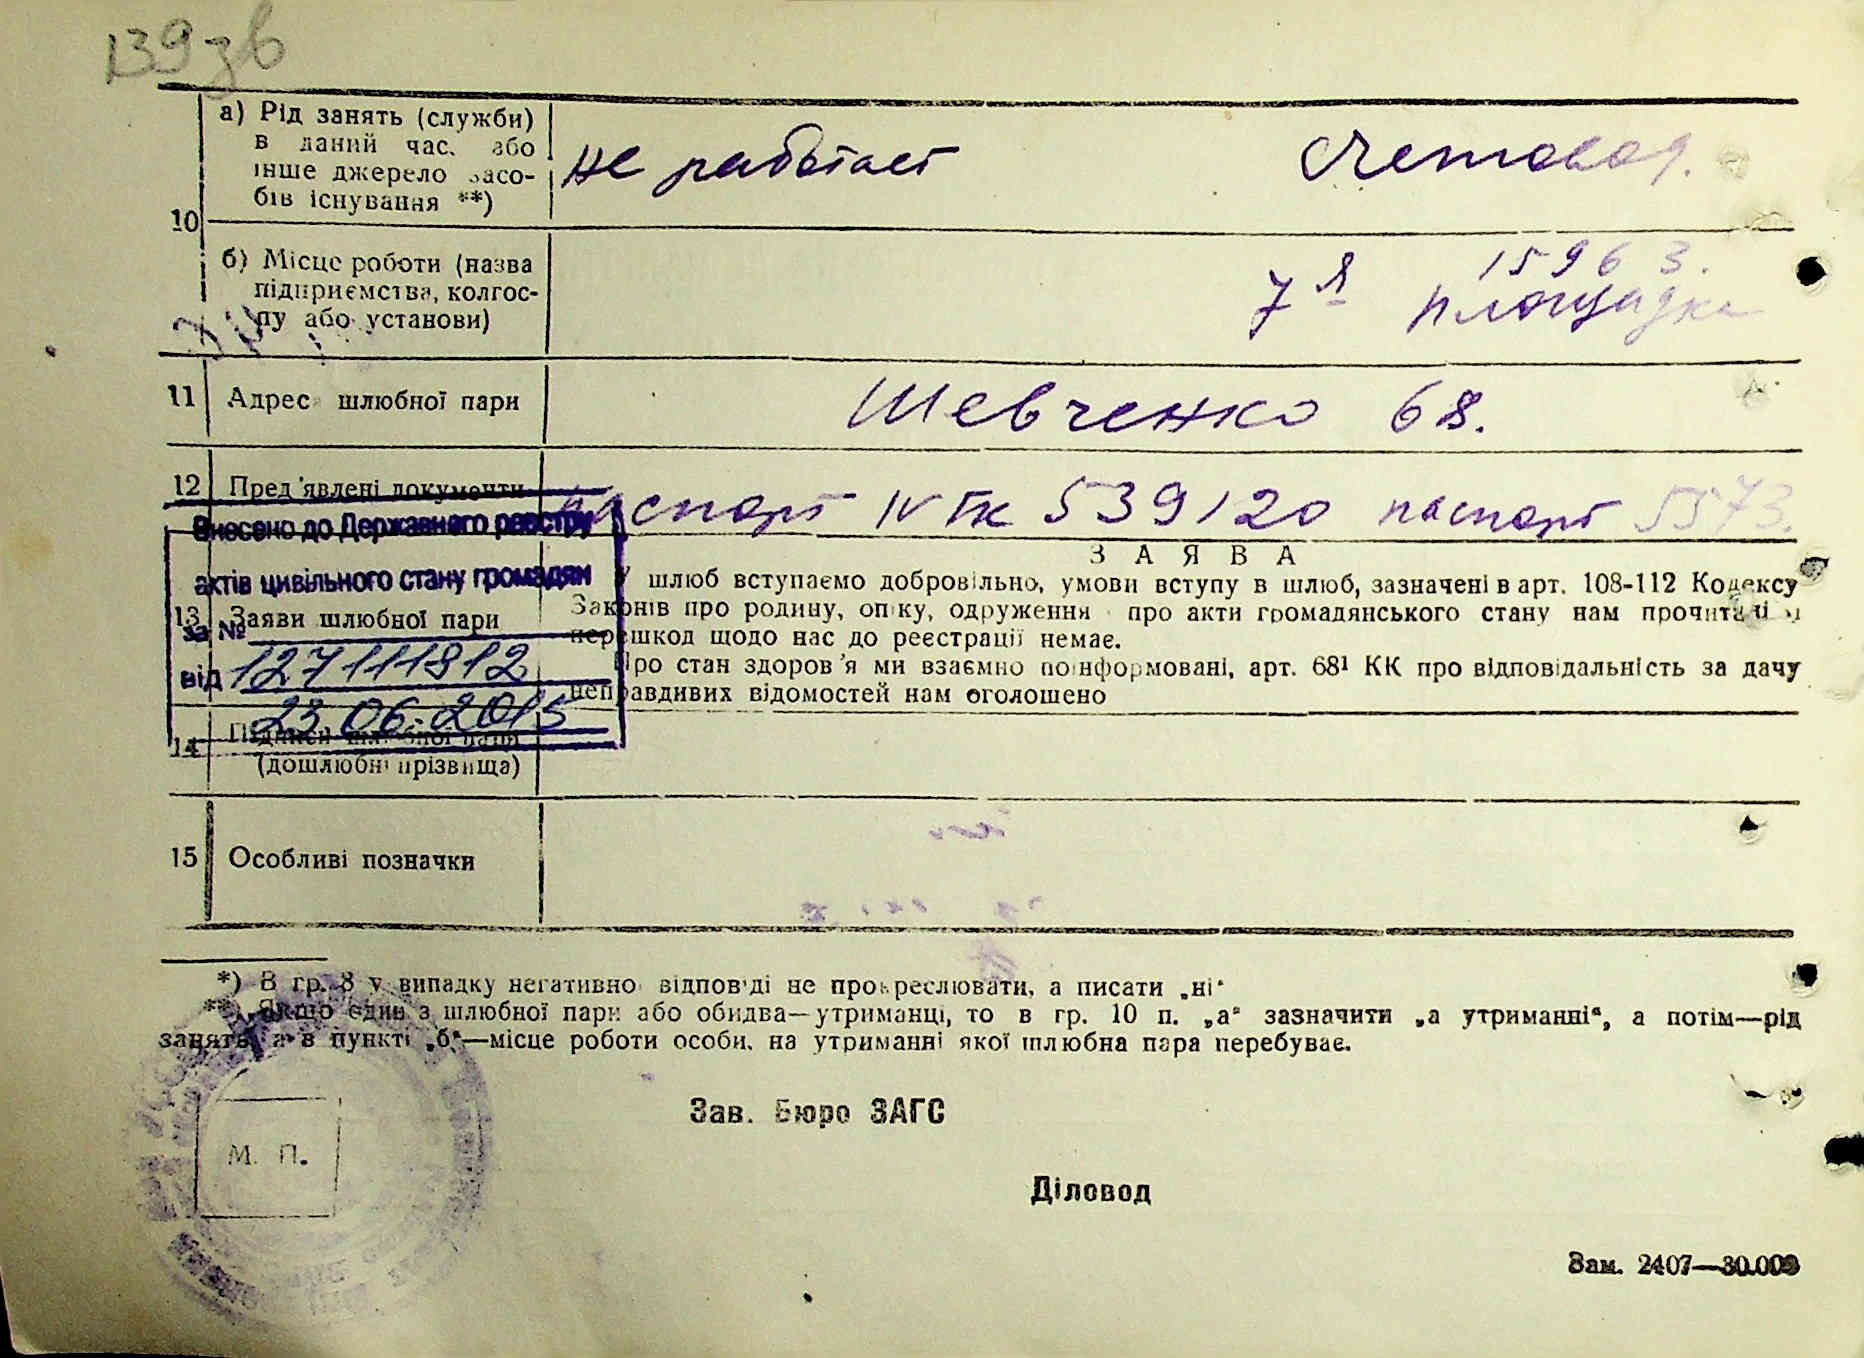 139 зв
а) Рід занять (служби)
в даний час, або
інше джерело засо-
бів існування **)
не работает
Счетовод.
10
б) Місце роботи (назва
підприємства, колгос-
пу або установи)
15963.
7я площадка
11 Адрес шлюбної пари
Шевченко 68.
12 Пред'явлені документи
паспорт IV ГК 539120 паспорт 5573.
Внесено до Державного реєстру
актів цивільного стану громадян
за №
127111812
від
23.06.2015
ЗАЯВА
13 Заяви шлюбної пари
У шлюб вступаємо добровільно, умови вступу в шлюб, зазначені в арт. 108-112 Кодексу
Законів про родину, опіку, одруження про акти громадянського стану нам прочитані
перешкод щодо нас до реєстрації немає.
Про стан здоров'я ми взаємно поінформовані, арт. 68¹ КК про відповідальність за дачу
неправдивих відомостей нам оголошено
14 Підписи шлюбної пари
(дошлюбні прізвища)
15 Особливі позначки
*) В гр. 8 у випадку негативної відповіді не прокреслювати, а писати „ні“
**) Якщо один з шлюбної пари або обидва—утриманці, то в гр. 10 п. „а“ зазначити „а утриманні“, а потім—рід
занять, а в пункті „б“—місце роботи особи, на утриманні якої шлюбна пара перебуває.
Зав. Бюро ЗАГС
М. П.
Діловод
Зам. 2407—30.000